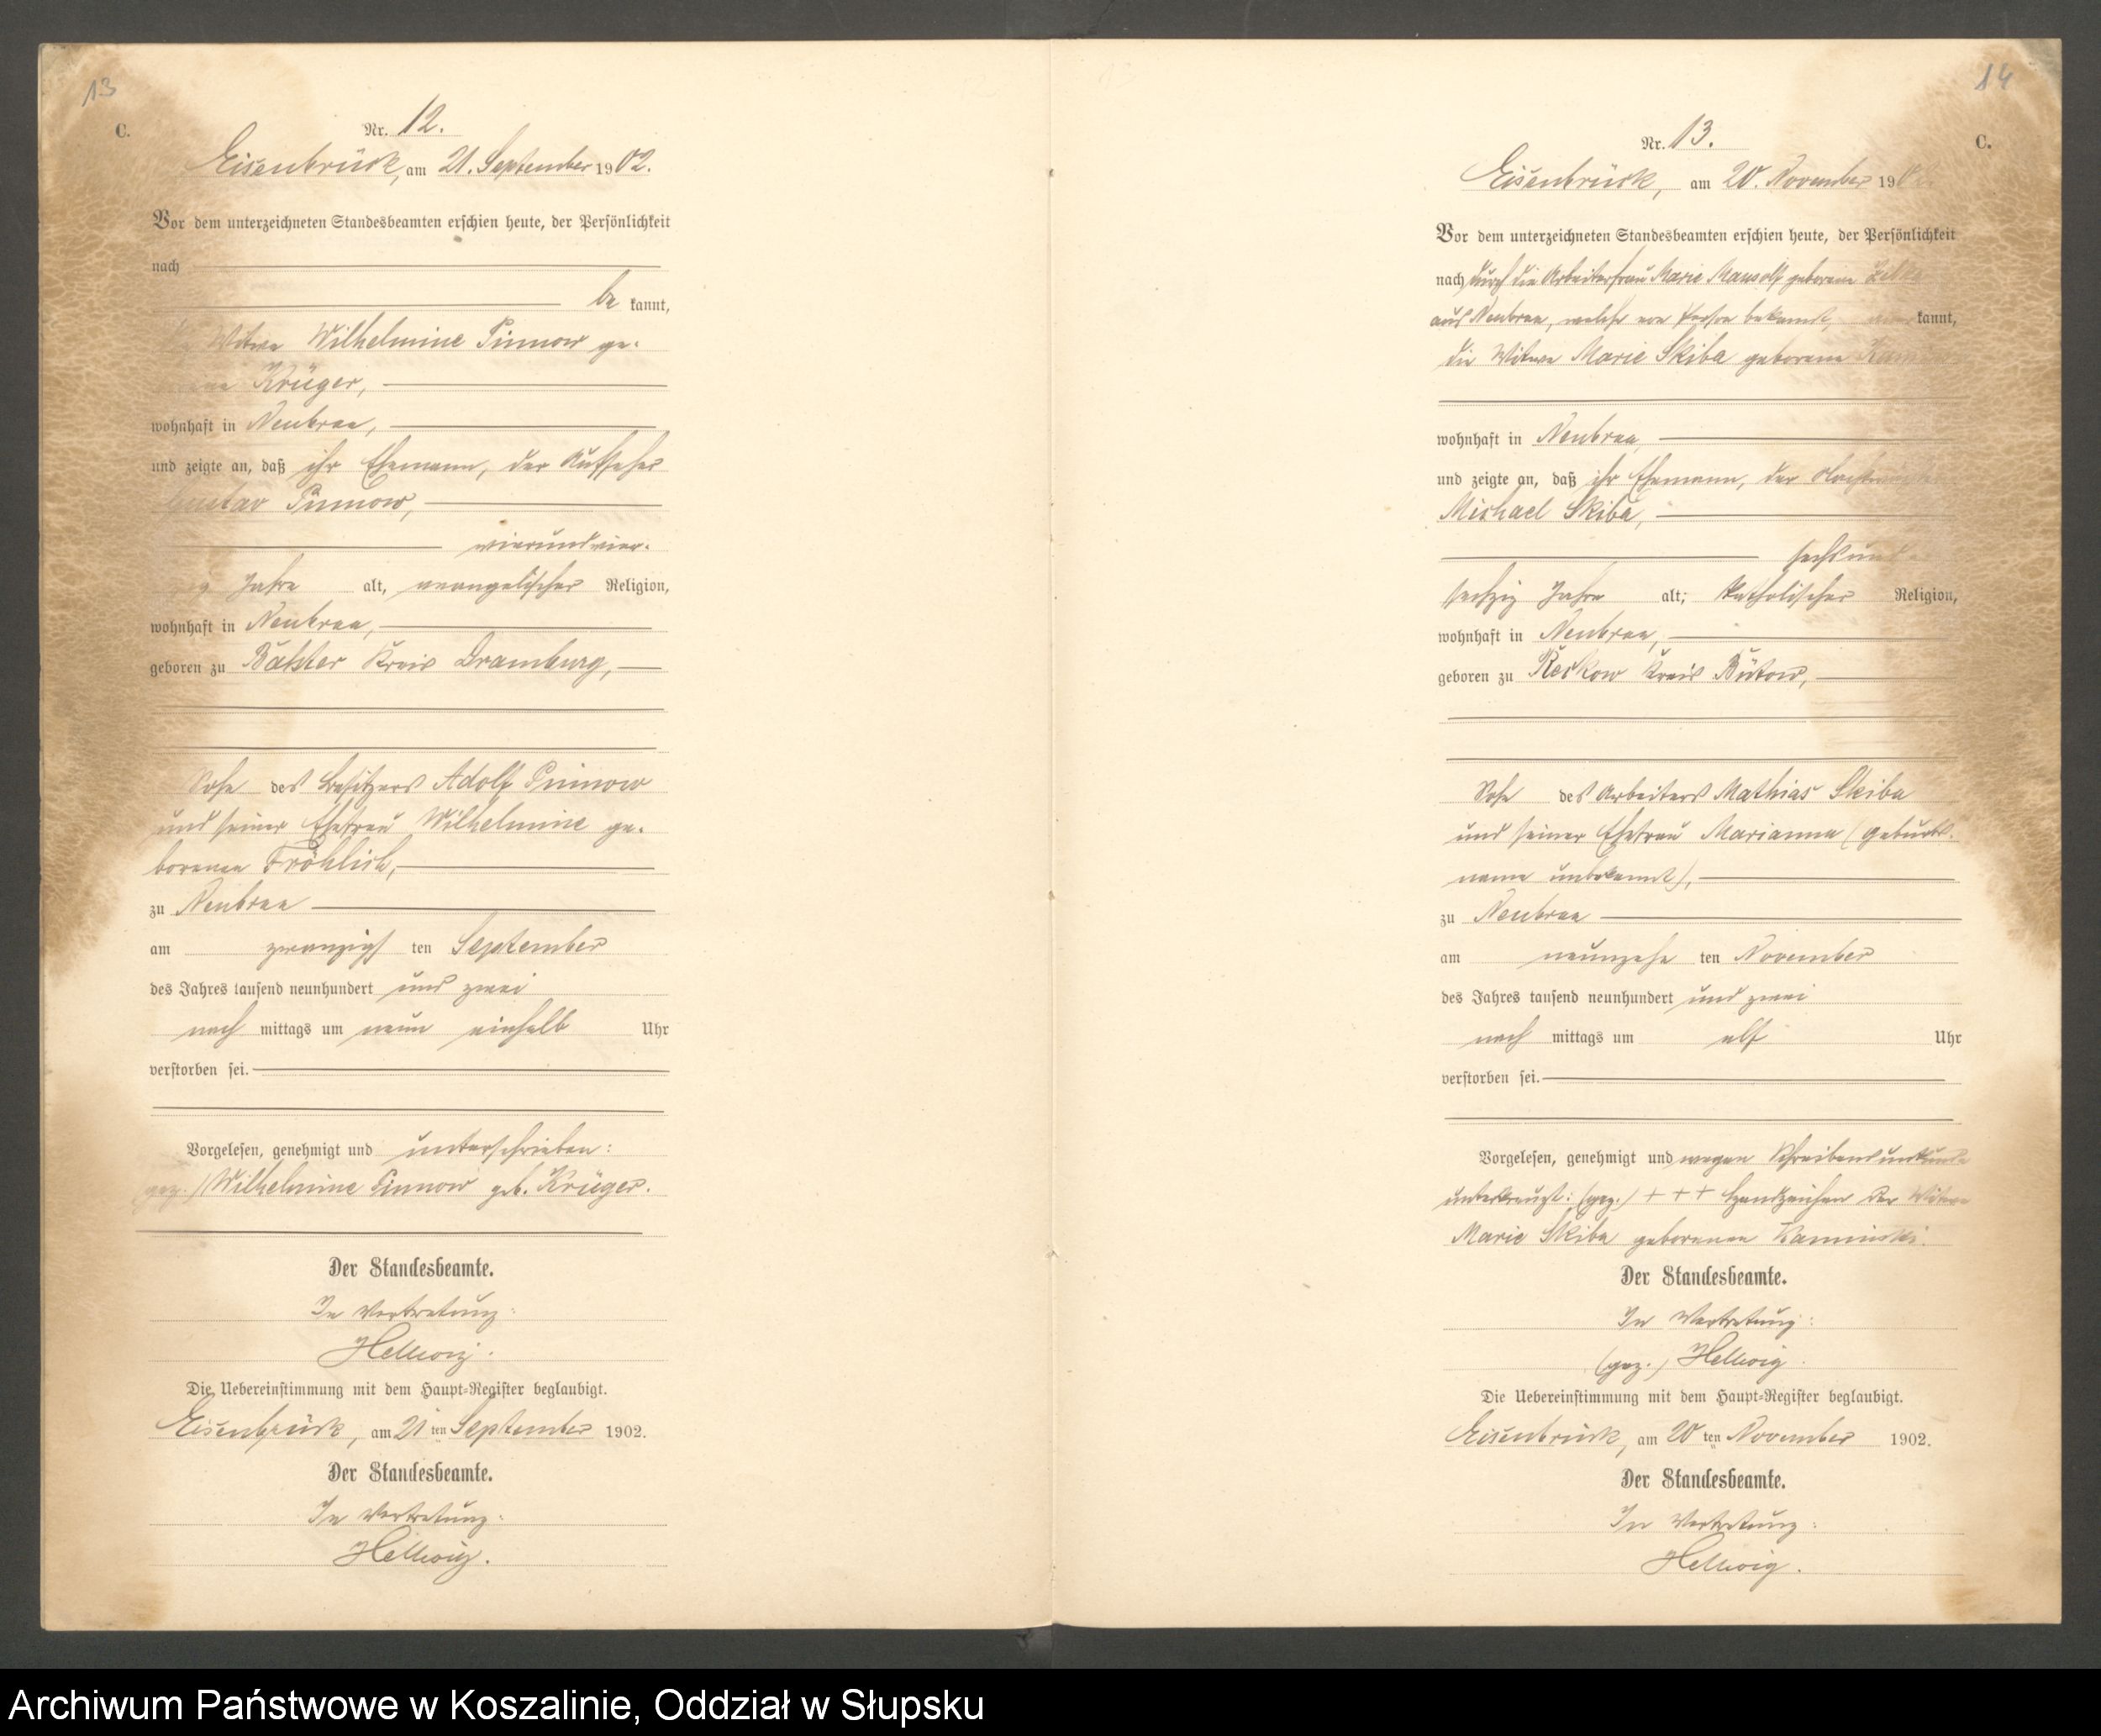 13
C.
Nr. 12.
Eisenbrück, am 21. September 1902.
Vor dem unterzeichneten Standesbeamten erschien heute, der Persönlichkeit
nach
be kannt,
Witwe Wilhelmine Pinnow ge-
Krüger,
wohnhaft in Neubraa,
und zeigte an, daß ihr Ehemann, der Aufseher
Gustav Pinnow,
vierundvier-
zig Jahre alt, evangelischer Religion,
wohnhaft in Neubraa,
geboren zu Balster Kreis Dramburg,
Sohn des Besitzers Adolf Pinnow
und seiner Ehefrau Wilhelmine ge-
borenen Fröhlich,
zu Neubraa
am zwanzigs ten September
des Jahres tausend neunhundert und zwei
nach mittags um neun einhalb Uhr
verstorben sei.
Vorgelesen, genehmigt und unterschrieben:
(gez.) Wilhelmine Pinnow geb. Krüger.
Der Standesbeamte.
In Vertretung:
Hellwig.
Die Uebereinstimmung mit dem Haupt-Register beglaubigt.
Eisenbrück, am 21 ten September 1902.
Der Standesbeamte.
In Vertretung:
Hellwig.
14
C.
Nr. 13.
Eisenbrück, am 20. November 190
Vor dem unterzeichneten Standesbeamten erschien heute, der Persönlichkeit
nach durch die Arbeiterfrau Marie Mausolf geborene
aus Neubraa, welche von Person bekannt, kannt,
die Witwe Marie Skiba geborene
wohnhaft in Neubraa,
und zeigte an, daß ihr Ehemann, der
Michael Skiba,
sechsund
sechzig Jahre alt, katholischer Religion,
wohnhaft in Neubraa,
geboren zu Reckow Kreis Bütow,
Sohn des Arbeiters Mathias Skiba
und seiner Ehefrau Marianna (Geburts-
name unbekannt),
zu Neubraa
am neunzehn ten November
des Jahres tausend neunhundert und zwei
nach mittags um elf Uhr
verstorben sei.
Vorgelesen, genehmigt und wegen Schreibensunkunde
unterkreuzt: (gez.) + + + Handzeichen der Witwe
Marie Skiba geborenen Kaminski.
Der Standesbeamte.
In Vertretung:
(gez.) Hellwig.
Die Uebereinstimmung mit dem Haupt-Register beglaubigt.
Eisenbrück, am 20 ten November 1902.
Der Standesbeamte.
In Vertretung:
Hellwig.
Archiwum Państwowe w Koszalinie, Oddział w Słupsku